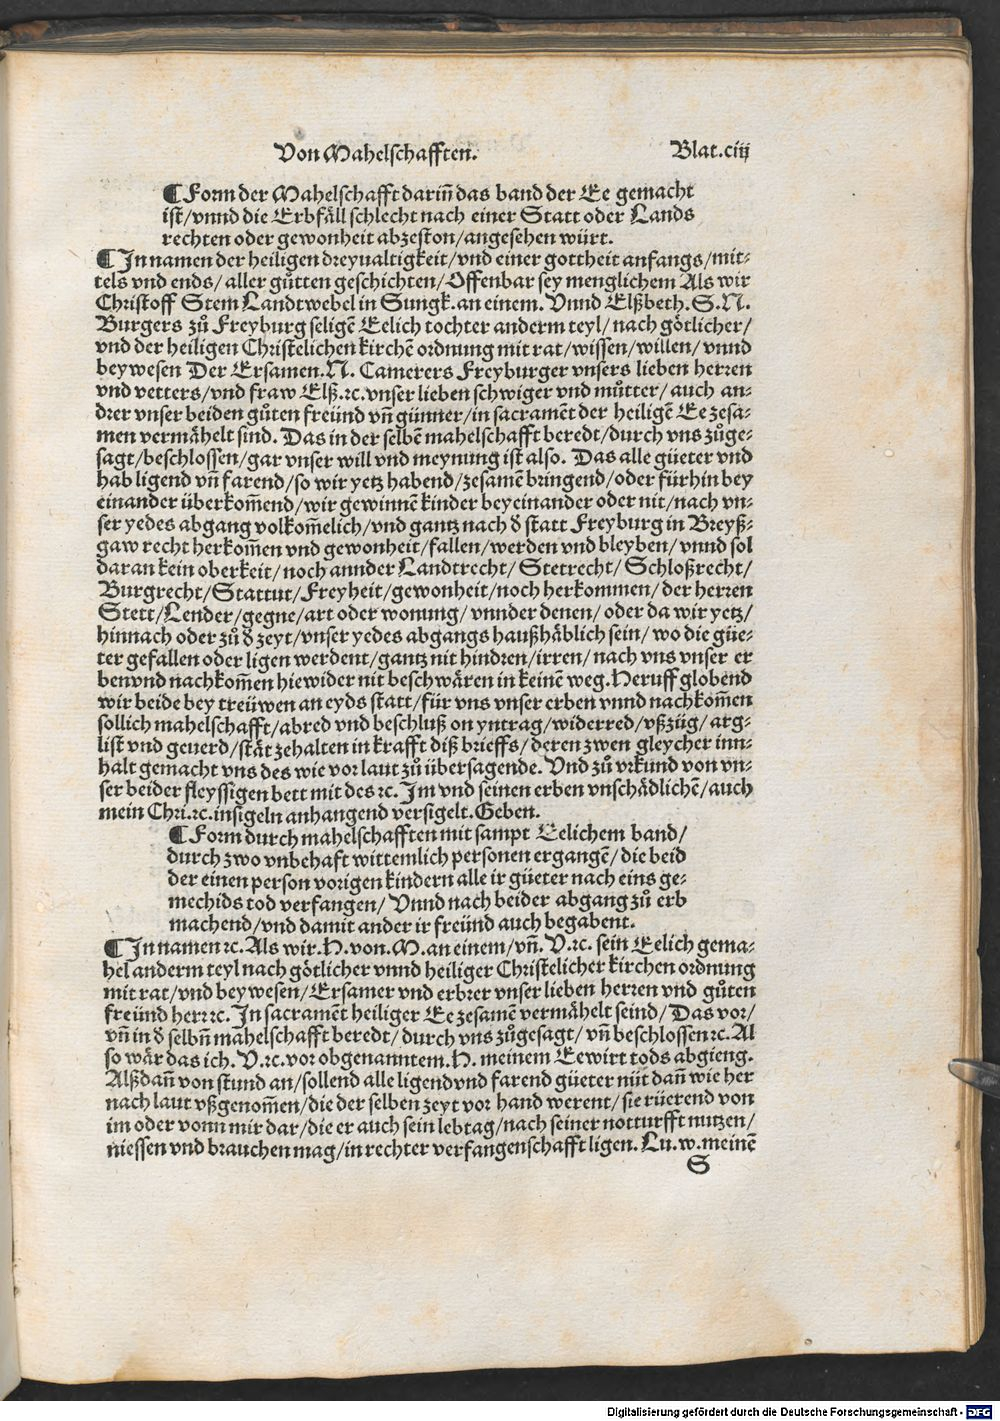 Von Mahelschafften. Blat.ciij
¶ Form der Mahelschafft dariñ das band der Ee gemacht
ist/vnnd die Erbfäll schlecht nach einer Statt oder Lands
rechten oder gewonheit abzeston/angesehen würt.
¶ In namen der heiligen dreyualtigkeit/vnd einer gottheit anfangs/mit⸗
tels vnd ends/aller gůtten geschichten/Offenbar sey menglichem Als wir
Christoff Stem Landtwebel in Sungk.an einem. Vnnd Elßbeth.S.N.
Burgers zů Freyburg seligẽ Eelich tochter anderm teyl/nach götlicher/
vnd der heiligen Christelichen kirchẽ ordnung mit rat/wissen/willen/vnnd
beywesen Der Ersamen.N. Camerers Freyburger vnsers lieben herren
vnd vetters/vnd fraw Elß.ꝛc.vnser lieben schwiger vnd můtter/auch an⸗
drer vnser beiden gůten freünd vñ günner/in sacramẽt der heiligẽ Ee zesa⸗
men vermähelt sind. Das in der selbẽ mahelschafft beredt/durch vns zůge⸗
sagt/beschlossen/gar vnser will vnd meynung ist also. Das alle güeter vnd
hab ligend vñ farend/so wir yetz habend/zesamẽ bringend/oder fürhin bey
einander überkom̃end/wir gewinnẽ kinder beyeinander oder nit/nach vn⸗
ser yedes abgang volkom̃elich/vnd gantz nach ð statt Freyburg in Breyß⸗
gaw recht herkom̃en vnd gewonheit/fallen/werden vnd bleyben/vnnd sol
daran kein oberkeit/noch annder Landtrecht/Stetrecht/Schloßrecht/
Burgrecht/Stattut/Freyheit/gewonheit/noch herkommen/der herren
Stett/Lender/gegne/art oder wonung/vnnder denen/oder da wir yetz/
hinnach oder zů ð zeyt/vnser yedes abgangs haußhäblich sein/wo die güe⸗
ter gefallen oder ligen werdent/gantz nit hindren/irren/nach vns vnser er
ben vnd nachkom̃en hiewider nit beschwären in keinẽ weg.Heruff globend
wir beide bey treüwen an eyds statt/für vns vnser erben vnnd nachkom̃en
sollich mahelschafft/abred vnd beschluß on yntrag/widerred/vßzüg/arg⸗
list vnd geuerd/stät zehalten in krafft diß brieffs/deren zwen gleycher inn⸗
halt gemacht vns des wie vor laut zů übersagende. Vnd zů vrkund von vn⸗
ser beider fleyssigen bett mit des ꝛc. Im vnd seinen erben vnschädlichẽ/auch
mein Chri.ꝛc.insigeln anhangend versigelt.Geben.
¶ Form durch mahelschafften mit sampt Eelichem band/
durch zwo vnbehaft wittemlich personen ergangẽ/die beid
der einen person vorigen kindern alle ir güeter nach eins ge⸗
mechids tod verfangen/Vnnd nach beider abgang zů erb
machend/vnd damit ander ir freünd auch begabent.
¶ In namen ꝛc. Als wir.H.von.M.an einem/vñ.V.ꝛc. sein Eelich gema⸗
hel anderm teyl nach götlicher vnnd heiliger Christelicher kirchen ordnung
mit rat/vnd beywesen/Ersamer vnd erbrer vnser lieben herren vnd gůten
freünd herr ꝛc. In sacramẽt heiliger Ee zesamẽ vermähelt seind/Das vor/
vñ in ð selbñ mahelschafft beredt/durch vns zůgesagt/vñ beschlossen ꝛc. Al
so wär das ich.V.ꝛc.vor obgenanntem.H. meinem Eewirt tods abgieng.
Alßdañ von stund an/sollend alle ligend vnd farend güeter nüt dañ wie her
nach laut vßgenom̃en/die der selben zeyt vor hand werent/sie rüerend von
im oder vonn mir dar/die er auch sein lebtag/nach seiner notturfft nutzen/
niessen vnd brauchen mag/in rechter verfangenschafft ligen. Lu.w.meinẽ
S
Digitalisierung gefördert durch die Deutsche Forschungsgemeinschaft - DFG